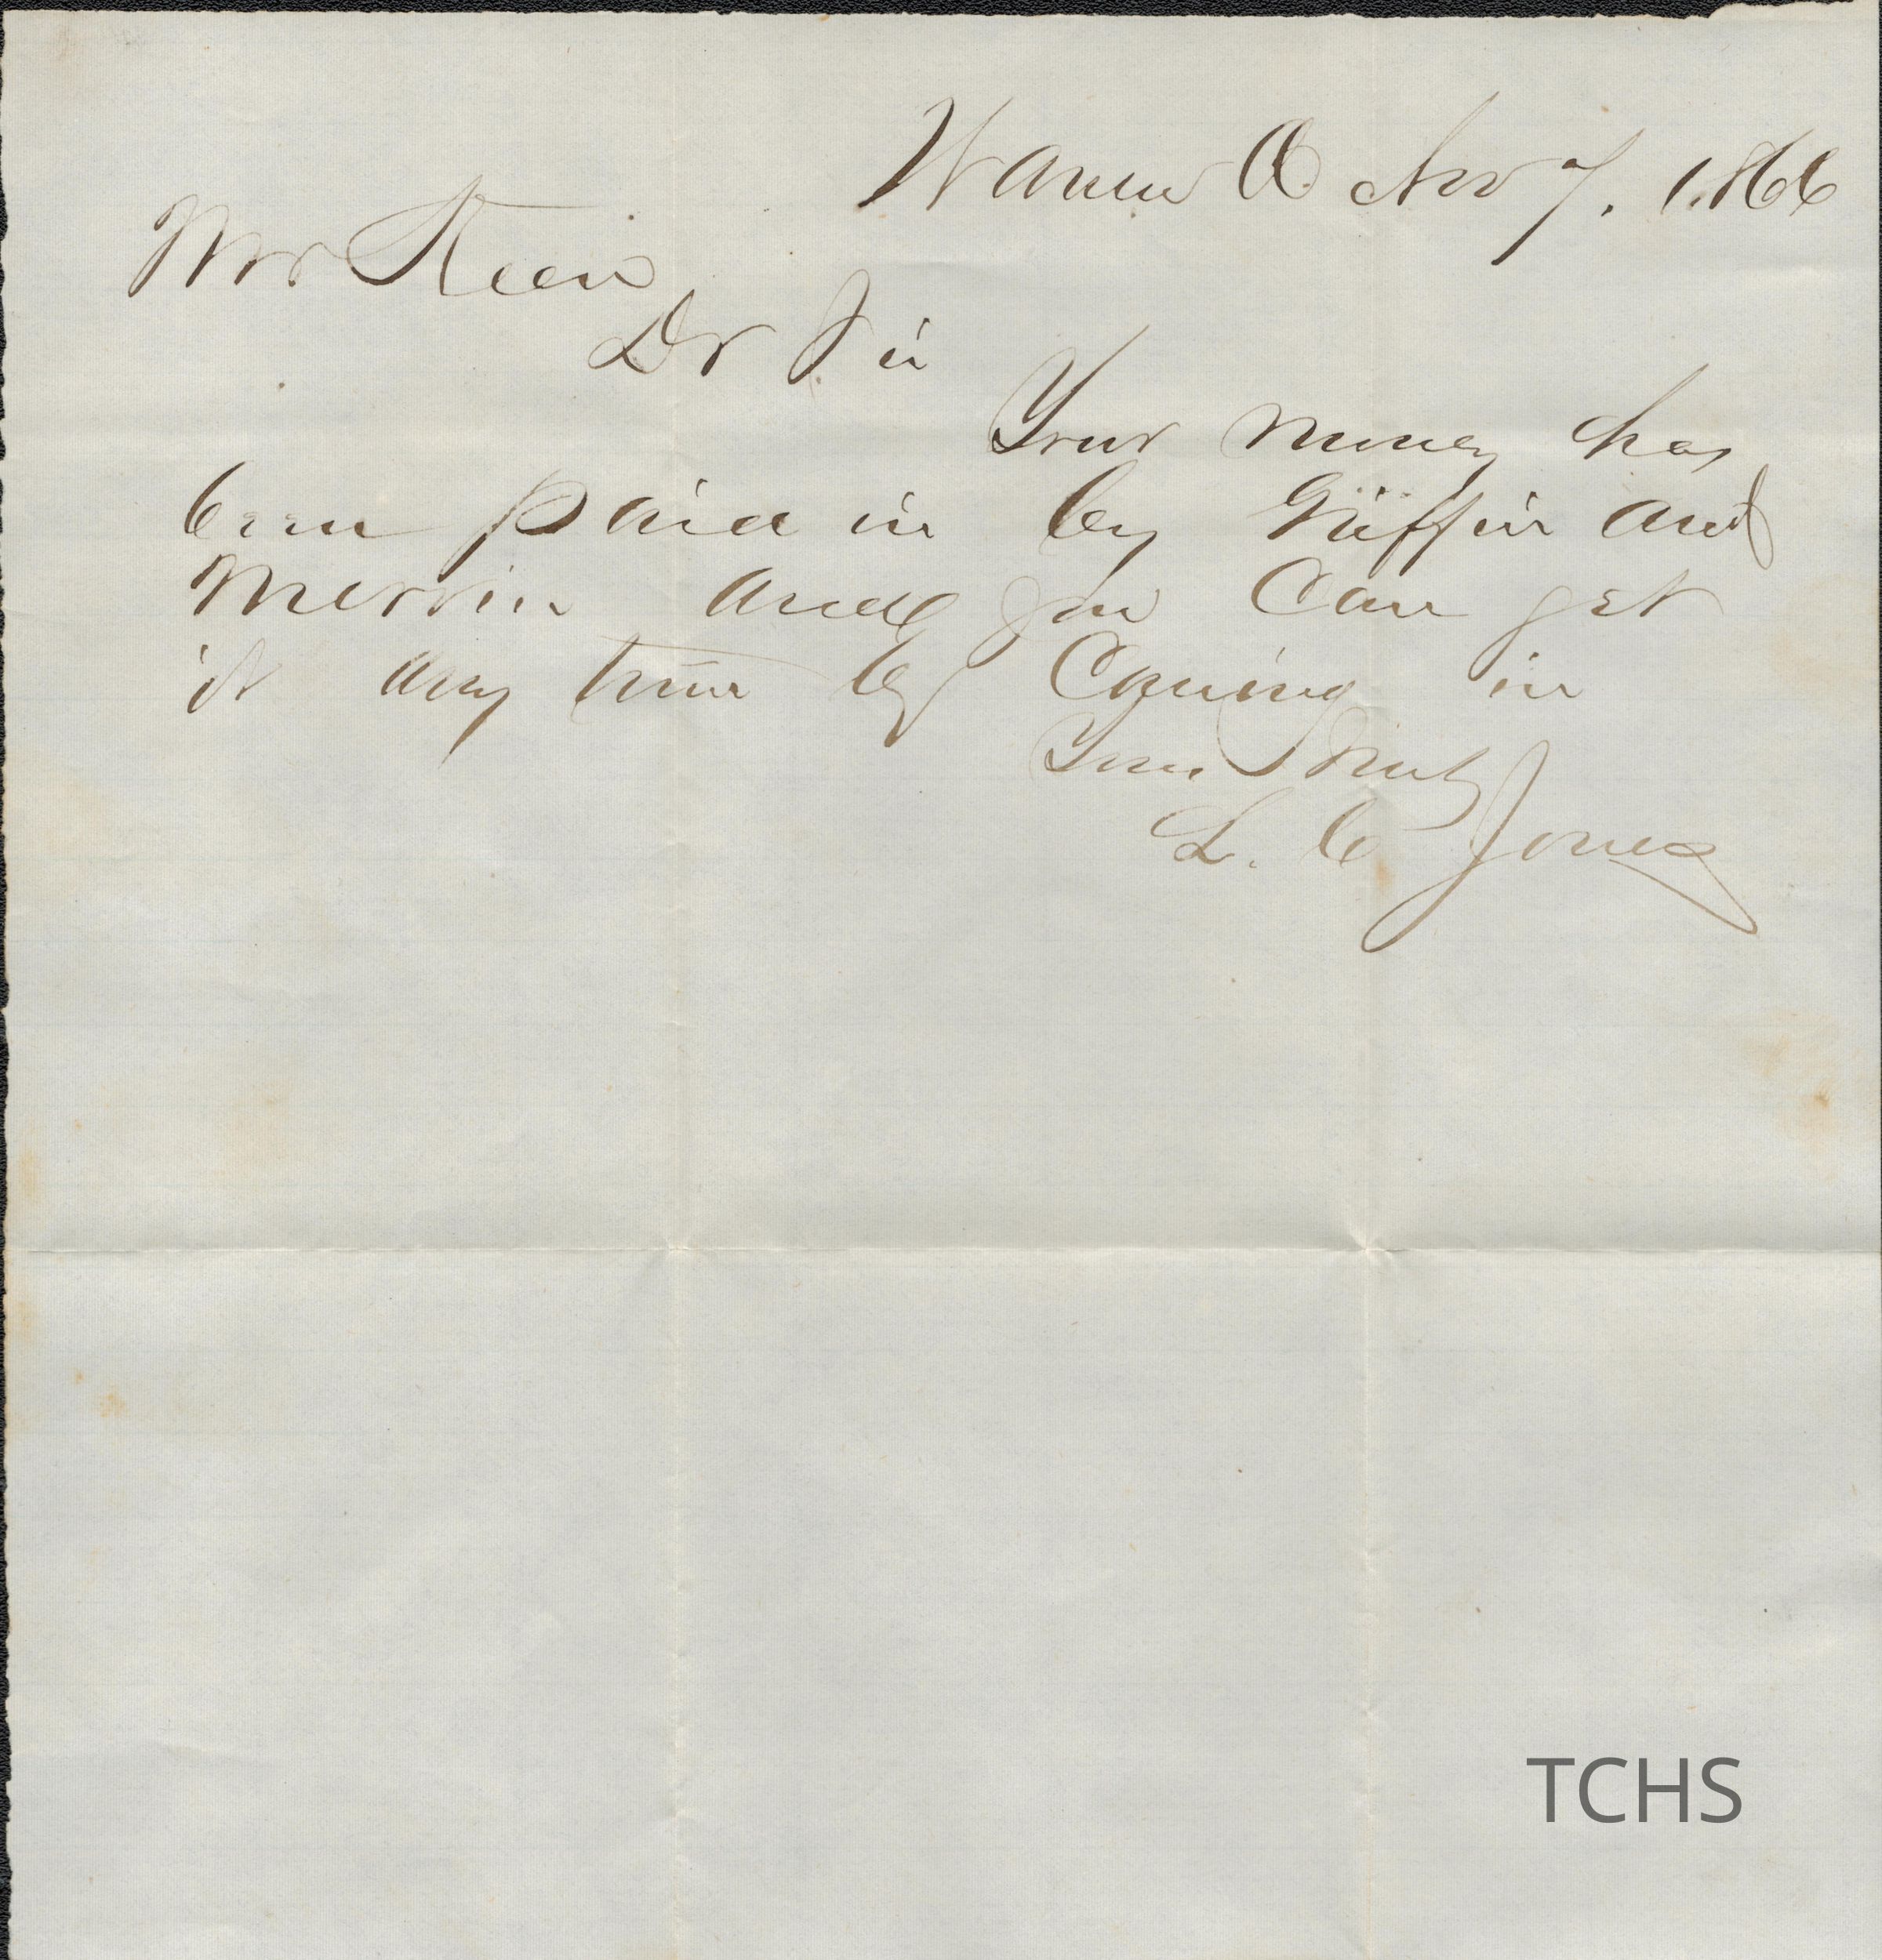 Warren O Nov 7. 1866
Mr Keen
Dr Sir
Your money has
been paid in by Griffin and
Merwin and you can get
it any time by Coming in
Yours Truly
L. C Jones
TCHS